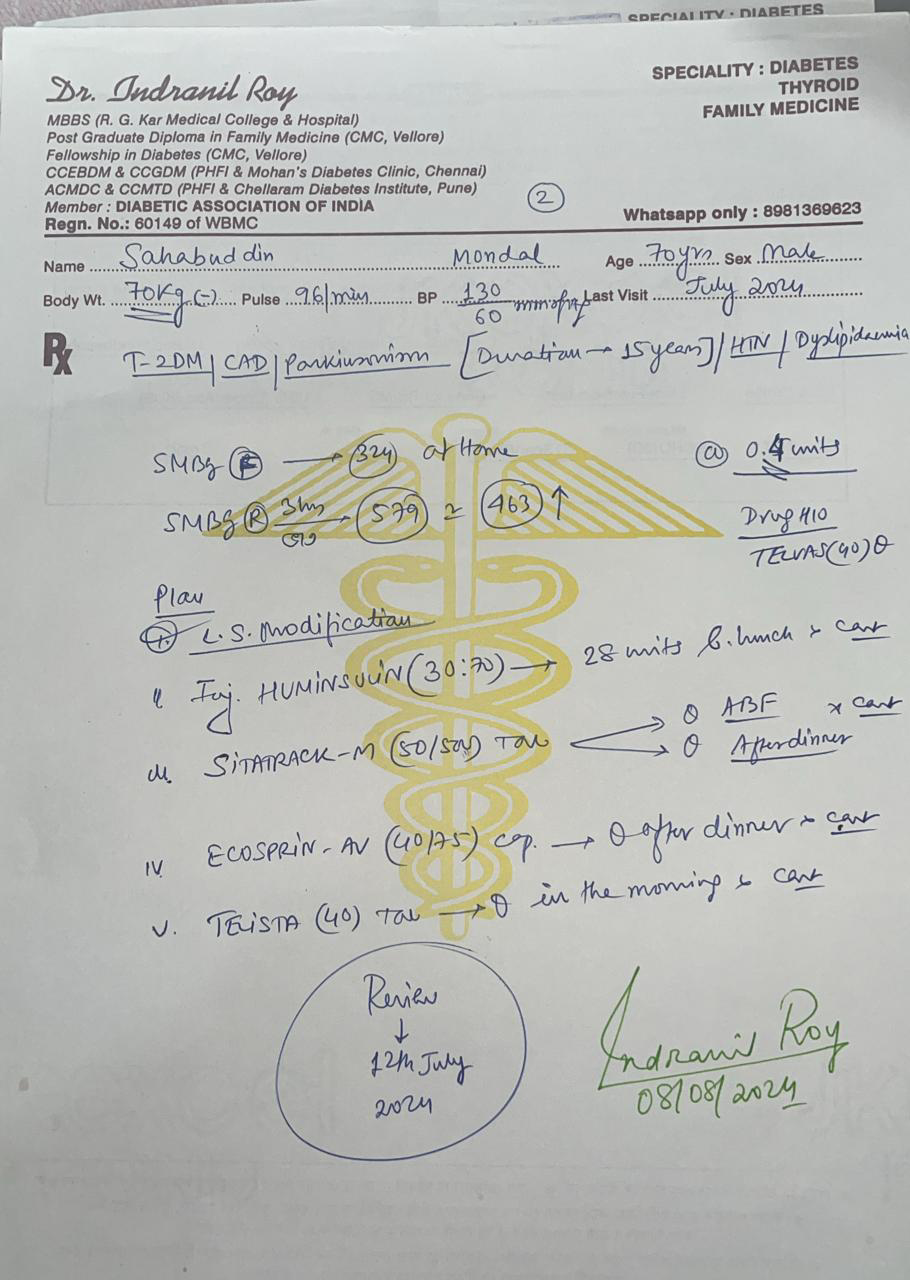 SPECIALITY : DIABETES
Dr. Indranil Roy
MBBS (R. G. Kar Medical College & Hospital)
Post Graduate Diploma in Family Medicine (CMC, Vellore)
Fellowship in Diabetes (CMC, Vellore)
CCEBDM & CCGDM (PHFI & Mohan's Diabetes Clinic, Chennai)
ACMDC & CCMTD (PHFI & Chellaram Diabetes Institute, Pune)
Member : DIABETIC ASSOCIATION OF INDIA
Regn. No.: 60149 of WBMC
SPECIALITY : DIABETES
THYROID
FAMILY MEDICINE
2
Whatsapp only : 8981369623
Name Sahabuddin Mondal Age 70yrs Sex Male
Body Wt. 70Kg (-) Pulse 96/min BP 130/60 mmofHg Last Visit July 2024
Rx
T-2DM / CAD / Parkinsonism [Duration → 15 years] / HTN / Dyslipidaemia
SMBG F → 324 at Home
@ 0.4 units
SMBG R 3hrs → 579 ≃ 463 ↑
Drug H/O
TELVAS (40)
Plan
L.S. Modification
Inj. HUMINSULIN (30:70) → 28 units b. lunch x cont
SITATRACK-M (50/500) Tab ABF x cont
After dinner
IV. ECOSPRIN-AV (40/75) cap. → after dinner x cont
V. TELISTA (40) Tab → in the morning x cont
Review
↓
12th July
2024
Indranil Roy
08/08/2024